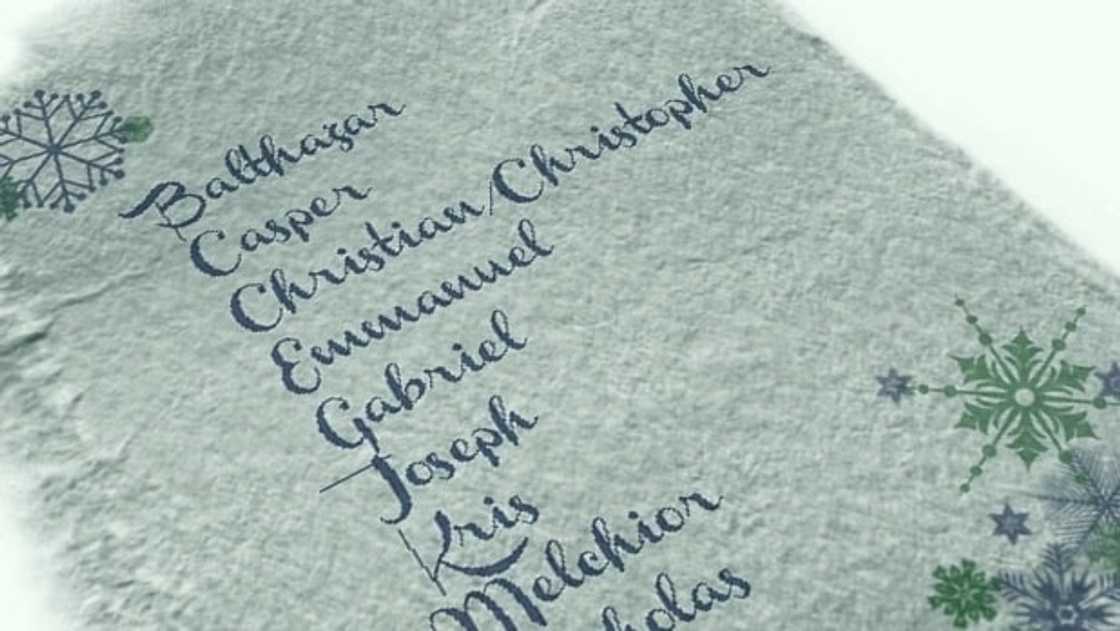 Balthazar
Casper
Christian/Christopher
Emmanuel
Gabriel
Joseph
Kris
Melchior